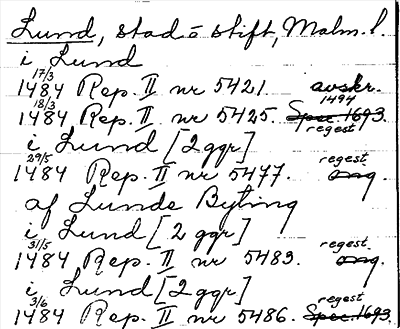 Lund, stad o stift, Malm. l.
i Lund
17/3
1484 Rep. II nr 5421. avskr.
18/3 1494
1484 Rep. II nr 5425. Spec. 1693.
regest
i Lund [2 ggr]
29/5 regest
1484 Rep. II nr 5477. orig.
af Lunde Byting
i Lund [2 ggr]
31/5 regest
1484 Rep. II nr 5483. orig.
i Lund [2 ggr]
3/6 regest
1484 Rep. II nr 5486. Spec. 1693